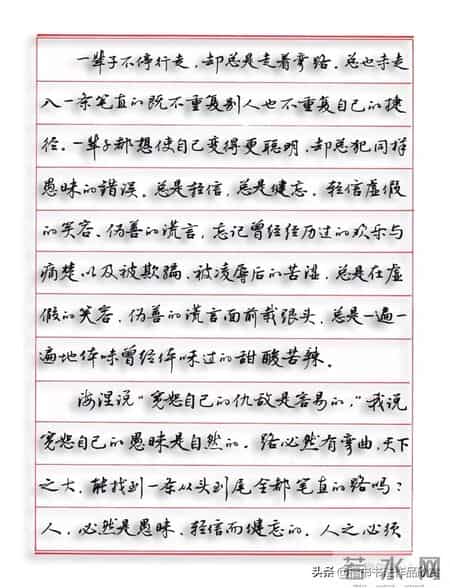 一辈子不停行走，却总是走着弯路。总也未走
入一条笔直的既不重复别人也不重复自己的捷
径。一辈子都想使自己变得更聪明，却总犯同样
愚昧的错误。总是轻信，总是健忘。轻信虚假
的笑容、伪善的谎言，忘记曾经经历过的欢乐与
痛楚以及被欺骗、被凌辱后的苦涩，总是在虚
假的笑容、伪善的谎言面前栽跟头，总是一遍一
遍地体味曾经体味过的甜酸苦辣。
海涅说“宽恕自己的仇敌是容易的，”我说
宽恕自己的愚昧是自然的。路必然有弯曲，天下
之大，能找到一条从头到尾全都笔直的路吗？
人，必然是愚昧、轻信而健忘的。人之必须
若水网